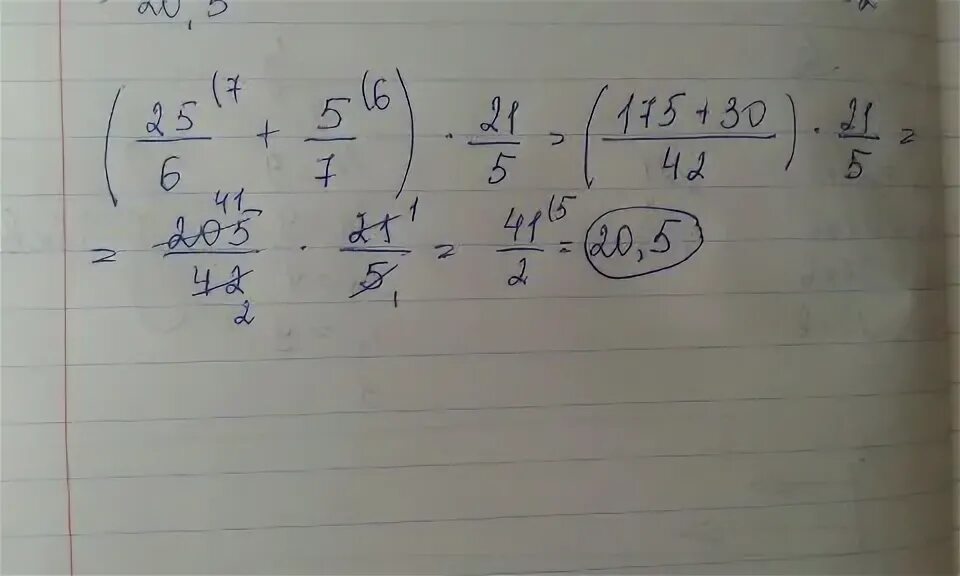 20,5 2
(25/6 (7 + 5/7 (6) · 21/5 = (175+30/42) · 21/5 =
= 205/42 41 2 · 21/5 1 1 = 41/2 (5 = 20,5